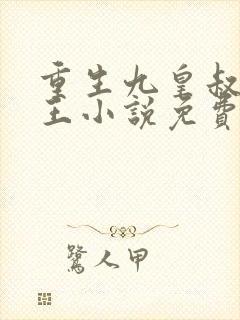 重生九皇叔
王小說免費
鷺人甲